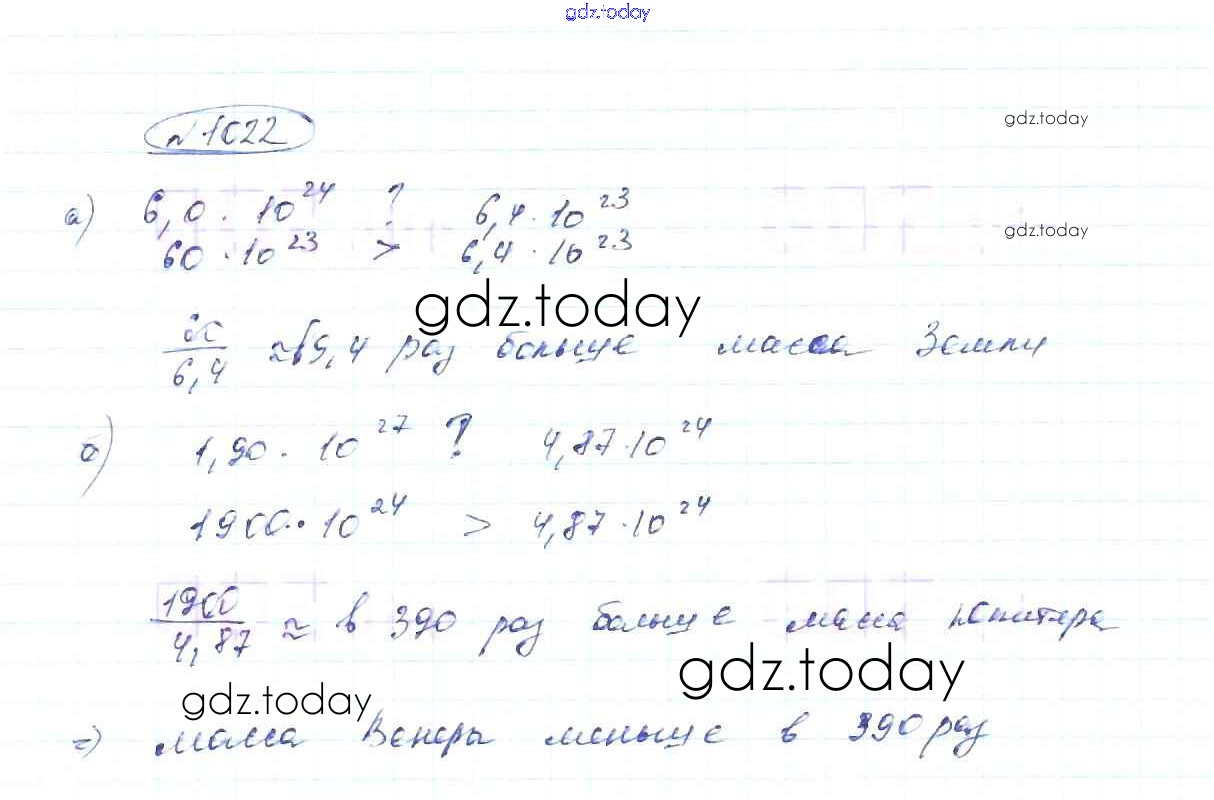 gdz.today
№1022
gdz.today
а) 6,0 · 10^24 ? 6,4 · 10^23
gdz.today
60 · 10^23 > 6,4 · 10^23
gdz.today
60/6,4 ≈ в 9,4 раз больше масса Земли
б) 1,90 · 10^27 ? 4,87 · 10^24
1900 · 10^24 > 4,87 · 10^24
1900/4,87 ≈ в 390 раз больше масса Юпитера
gdz.today
gdz.today
=) масса Венеры меньше в 390 раз